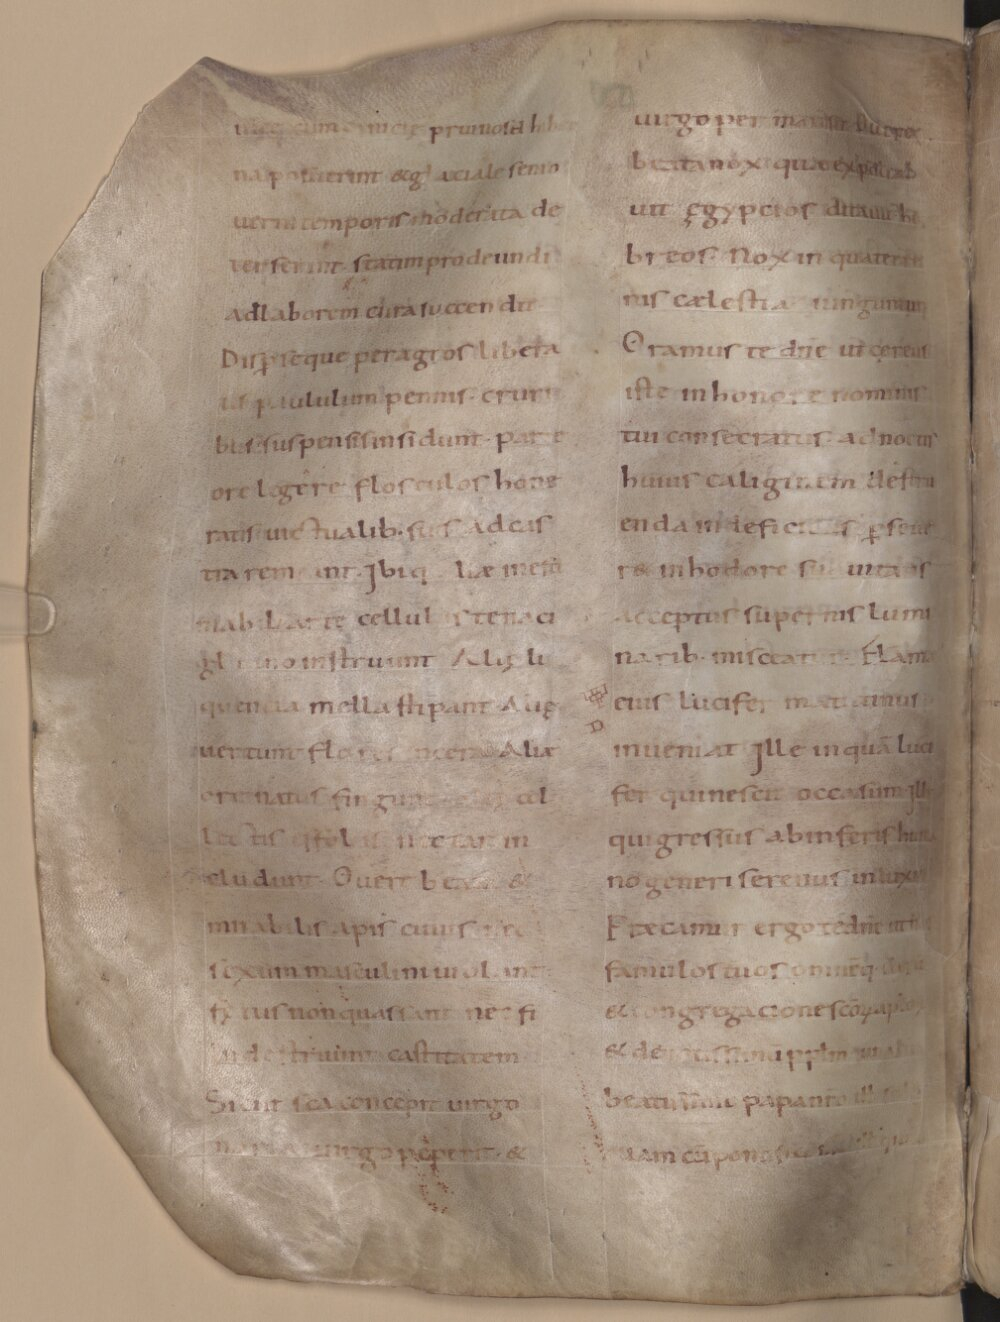 cum canicie pruinosa hiber
na posuerint & glaciale senio
uerni temporis moderata de
terserint. statim prodeundi
Ad laborem cura succendit
Disp̄seque per agros libera
tis paululum pennis. cruri
bus suspensis insidunt. parte
ore legere flosculos hone
ratis uictualib. suis ad cas
tra remeant. Ibiq. aliae
arte cellulas tenaci
glutino instruunt Aliȩ li
quencia mella stipant Aliȩ
uertunt flores in cera Aliae
ore natus fingunt col
lectis e foliis nectar in
cludunt. O uere beata &
mirabilis apis cuius nec
sexum masculi uiolant
fȩtus non quassant nec fi
lii destruunt castitatem
Sicut sc̄a concepit uirgo
maria uirgo peperit. &
uirgo permansit. O uere
beata nox quae expoliab
uit ȩgyptios ditauit he
breos. Nox in qua terre
nis caelestia iunguntur
Oramus te dn̄e ut cereus
iste in honore nominis
tui consecratus ad noctis
huius caliginem destru
enda indeficiens p̱seue
r& in hodore suauitatis
acceptus supernis lumi
narib. misceatur. Flam
eius lucifer matutinus
inueniat Ille inquā luci
fer qui nescit occasum Ille
qui gressus ab inferis hum
no generi serenus inluxit
Precamur ergo te dn̄e ut n
famulos tuos omneq.
& congregacione sc̄o
& deuotissimū pplm una
beatissimo papa nr̄o ill